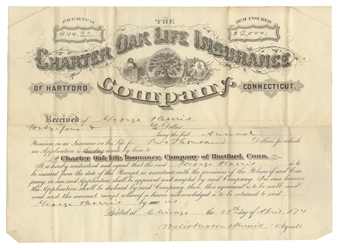 PREMIUM
THE
SUM INSURED
$44.20
$2,000.
CHARTER OAK LIFE INSURANCE
OF HARTFORD
Company
CONNECTICUT.
Received of George Harris
Forty four & Dollars
being the first Annual
Premium on an Insurance on his Life for Two Thousand Dollars for which
an Application is made by him to
The Charter Oak Life Insurance Company of Hartford, Conn.
It is hereby understood and agreed that the said George Harris is to
be insured from the date of this Receipt in accordance with the provisions of the Policies of said Company
in use said Application shall be approved and accepted by said Company. In case however
this Application shall be declined by said Company, then this agreement is to be null and
void and the amount receipt whereof is herein acknowledged is to be returned to said
George Harris by me
Dated, Chicago the 28th day of Apr 1874
Agents